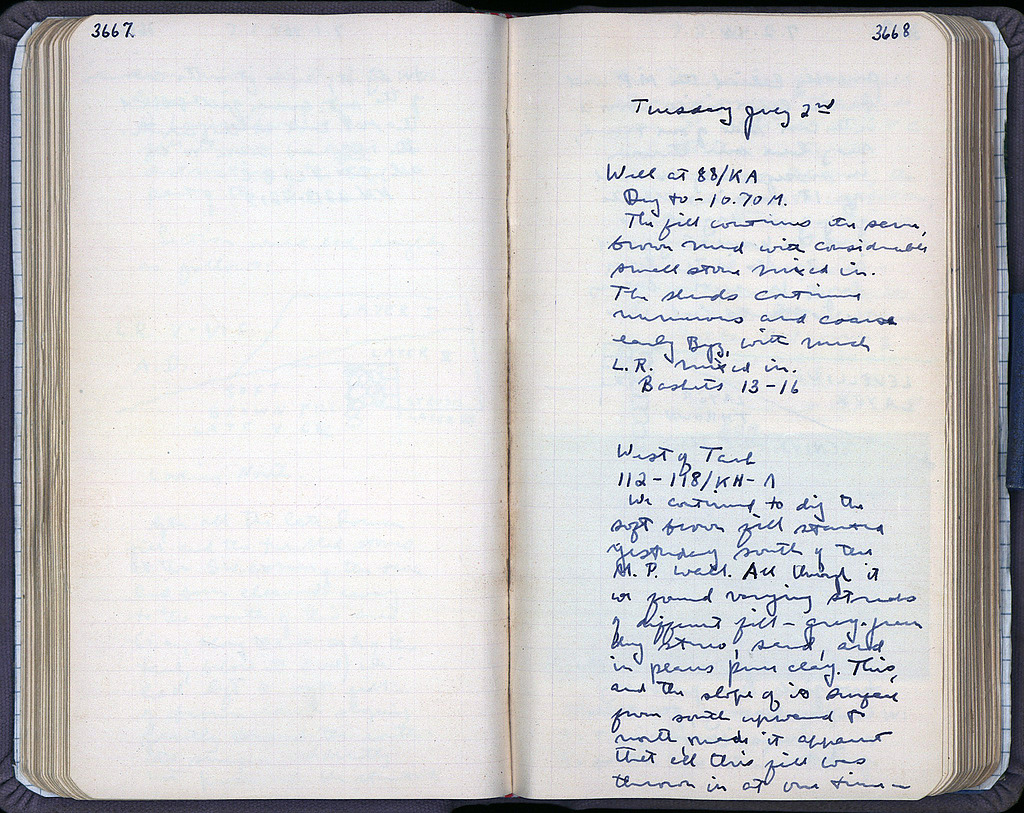 3667
3668
Tuesday July 2nd
Well at 88/KA
Dug to -10.70 M.
The fill continues the same,
brown mud with considerable
small stone mixed in.
The sherds continue
numerous and coarse
early Byz, with much
L.R. mixed in.
Baskets 13-16
West of Tank
112-118/KH-Λ
We continued to dig the
soft brown fill started
yesterday south of the
M.P. wall. All through it
we found varying streaks
of different fill - grey-green
dug stereo, sand, and
in places pure clay. This,
and the slope of its surface
from south upward to
north, made it apparent
that all this fill was
thrown in at one time -